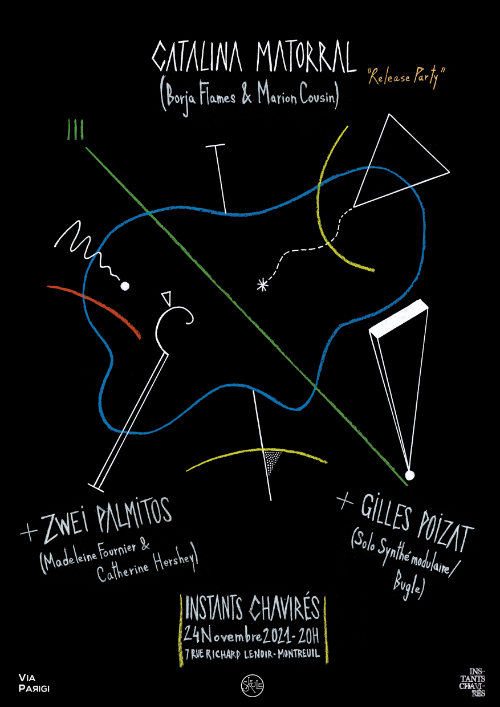 CATALINA MATORRAL
"Release Party"
(Borja Flames & Marion Cousin)
+ ZWEI PALMITOS
(Madeleine Fournier &
Catherine Hershey)
+ GILLES POIZAT
(Solo Synthé modulaire/
Bugle)
INSTANTS CHAVIRÉS
24 Novembre 2021 - 20H
7 RUE RICHARD LENOIR - MONTREUIL
VIA
PARIGI
INS-
TANTS
CHAVI-
RÉS